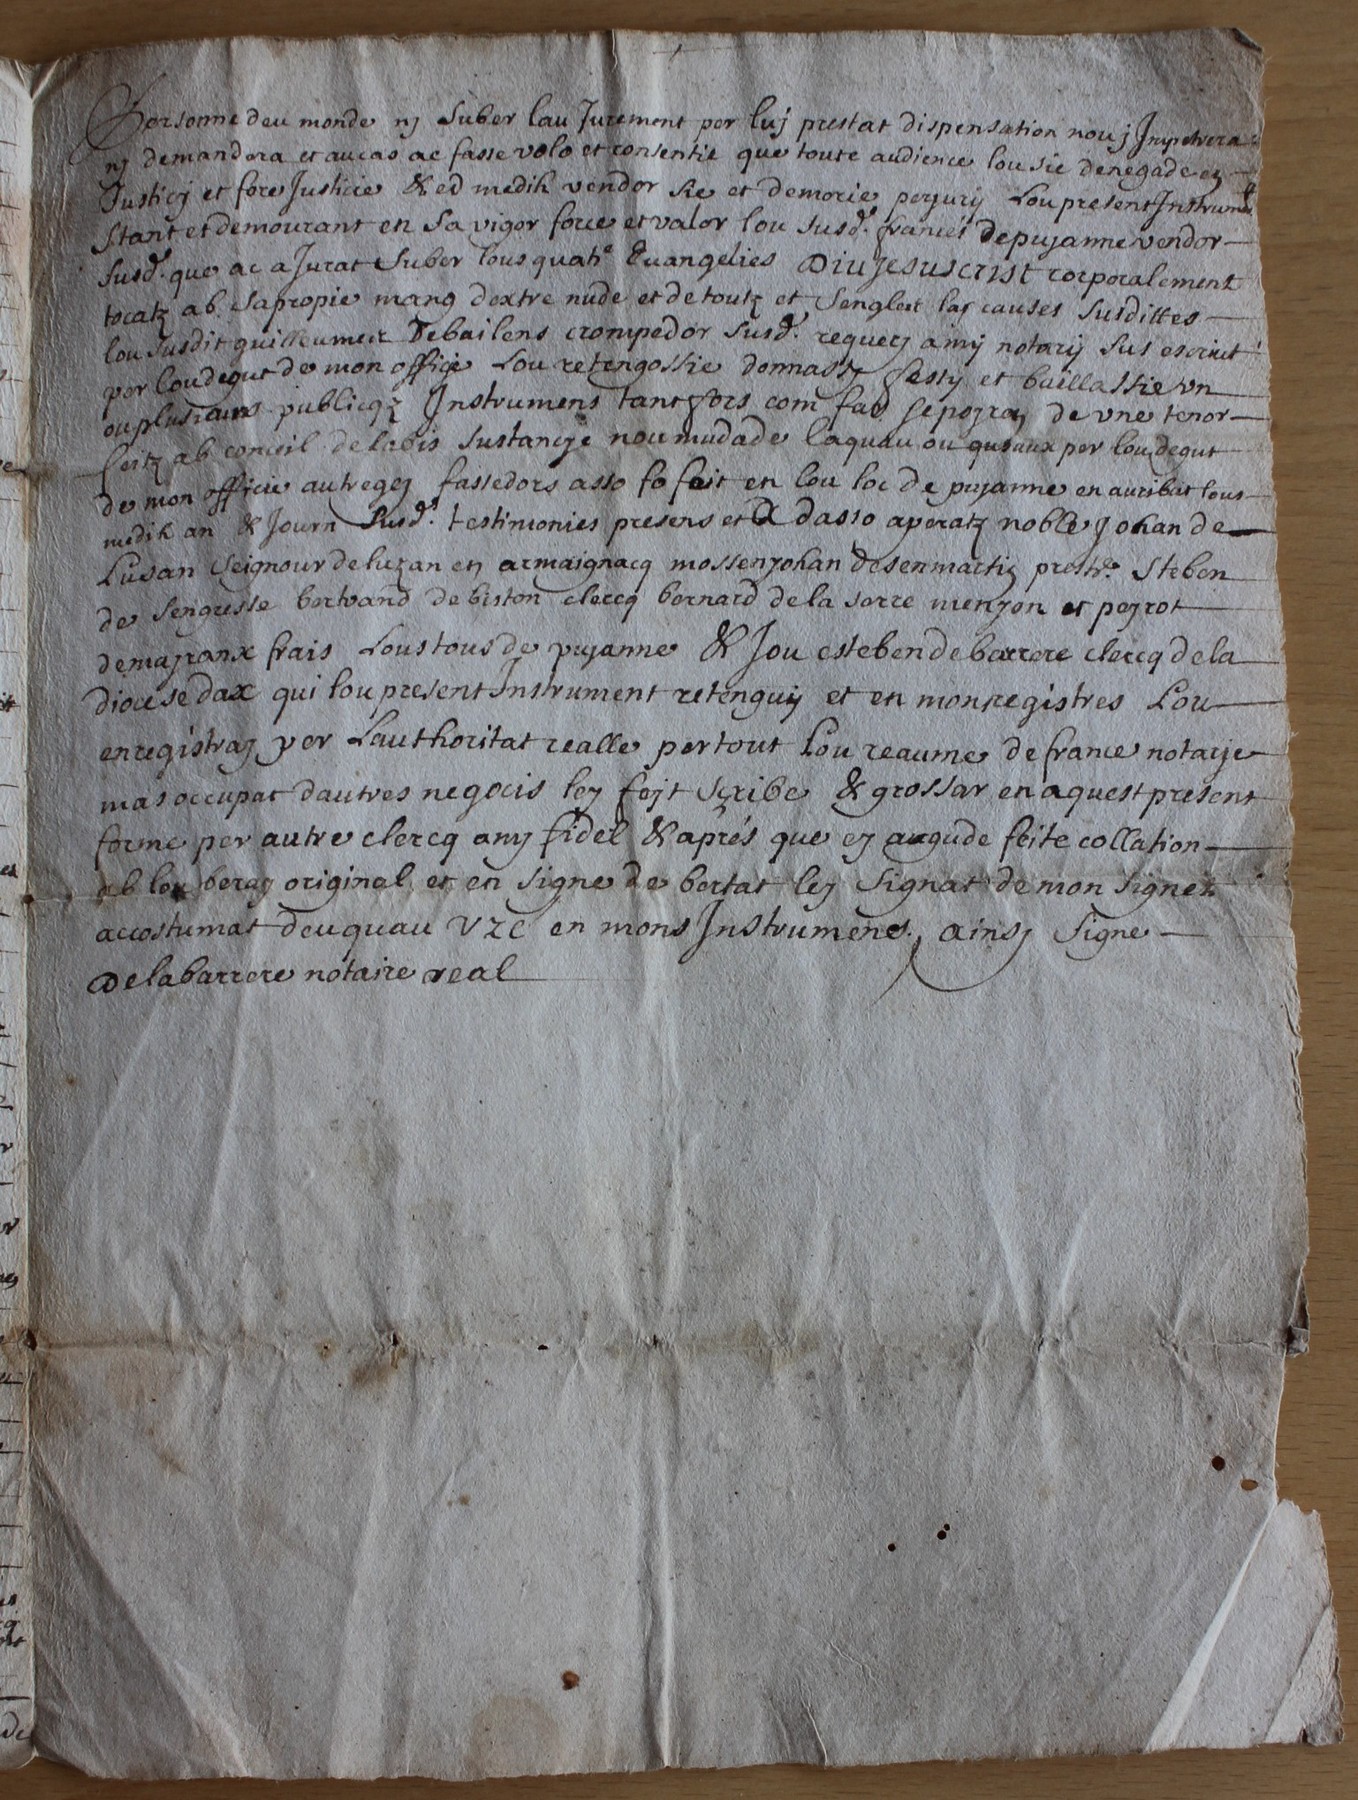 Persone deu monde nj Suber lau Jurement per luj prestat dispensation nouj Impetrera
nj demandera et aucas ac fasse volo et consentie que toute audience lou sie denegade en
Justicj et fore Justicie & ed medih vendor sie et demorie perjurij Lou present Instrumt
Stant et demourant en Sa vigor force et valor lou Susd.t francés de pujanne vendor
Susd.t que ac a Jurat Suber lous quath.e Euangelies DIU JESUSCRIST corporalement
tocatz ab Sa propie mang dextre nude et de toutz et Sengles las causes Susdittes
lou Susdit guilleumet Debailens crompedor Susd.t requery a mij notarij Sus escriut
per lou degut de mon officie Lou retengossie donnassy festy et baillassie vn
ou plusieurs publicqz Instrumens tant fors com far Se poyra de vne tenor
feitz ab conseil de labis Sustancye nou mudade laquau ou quaux per lou degut
de mon officie autregey fassedors asso fo feit en lou loc de pujanne en auribat lous
medih an & Journ Susd.s testimonies presens et A dasso aperatz noble Johan de
Lusan Seignour de luzan en armaignacq mossen johan desenmartin prest.e Steben
de Sengresse bertrand de biston clercq bernard de la serre menzon et peyrot
demayranx frais Lous tous de pujanne & Jou esteben de barrere clercq de la
diocese dax qui lou present Instrument retenguij et en mon registres Lou
enregistray per Lauthoritat realle per tout Lou reaume de france notarje
mas occupat dautres negocis ley feyt scribe & grossar en aquest present
forme per autre clercq amy fidel & aprés que ey augude feite collation
ab lou beray original et en signe de bertat ley Signat de mon signet
accostumat deu quau VZE en mons Instrumens, ainsj Signe
De labarrere notaire real